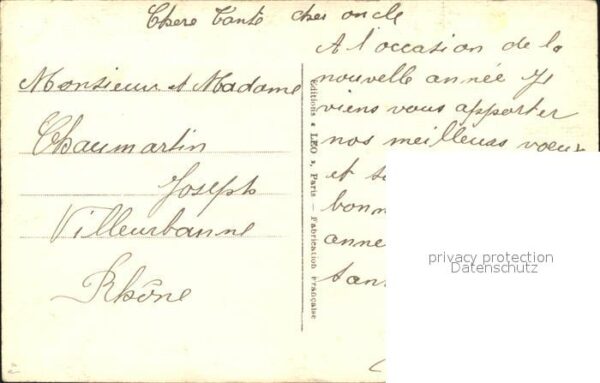 Chere Tante cher oncle
Monsieur et Madame
Chaumartin
Joseph
Villeurbanne
Rhône
Editions « LEO », Paris — Fabrication Française
A l'occasion de la
nouvelle année je
viens vous apporter
nos meilleurs voeux
et
bonn
anne
privacy protection
Datenschutz